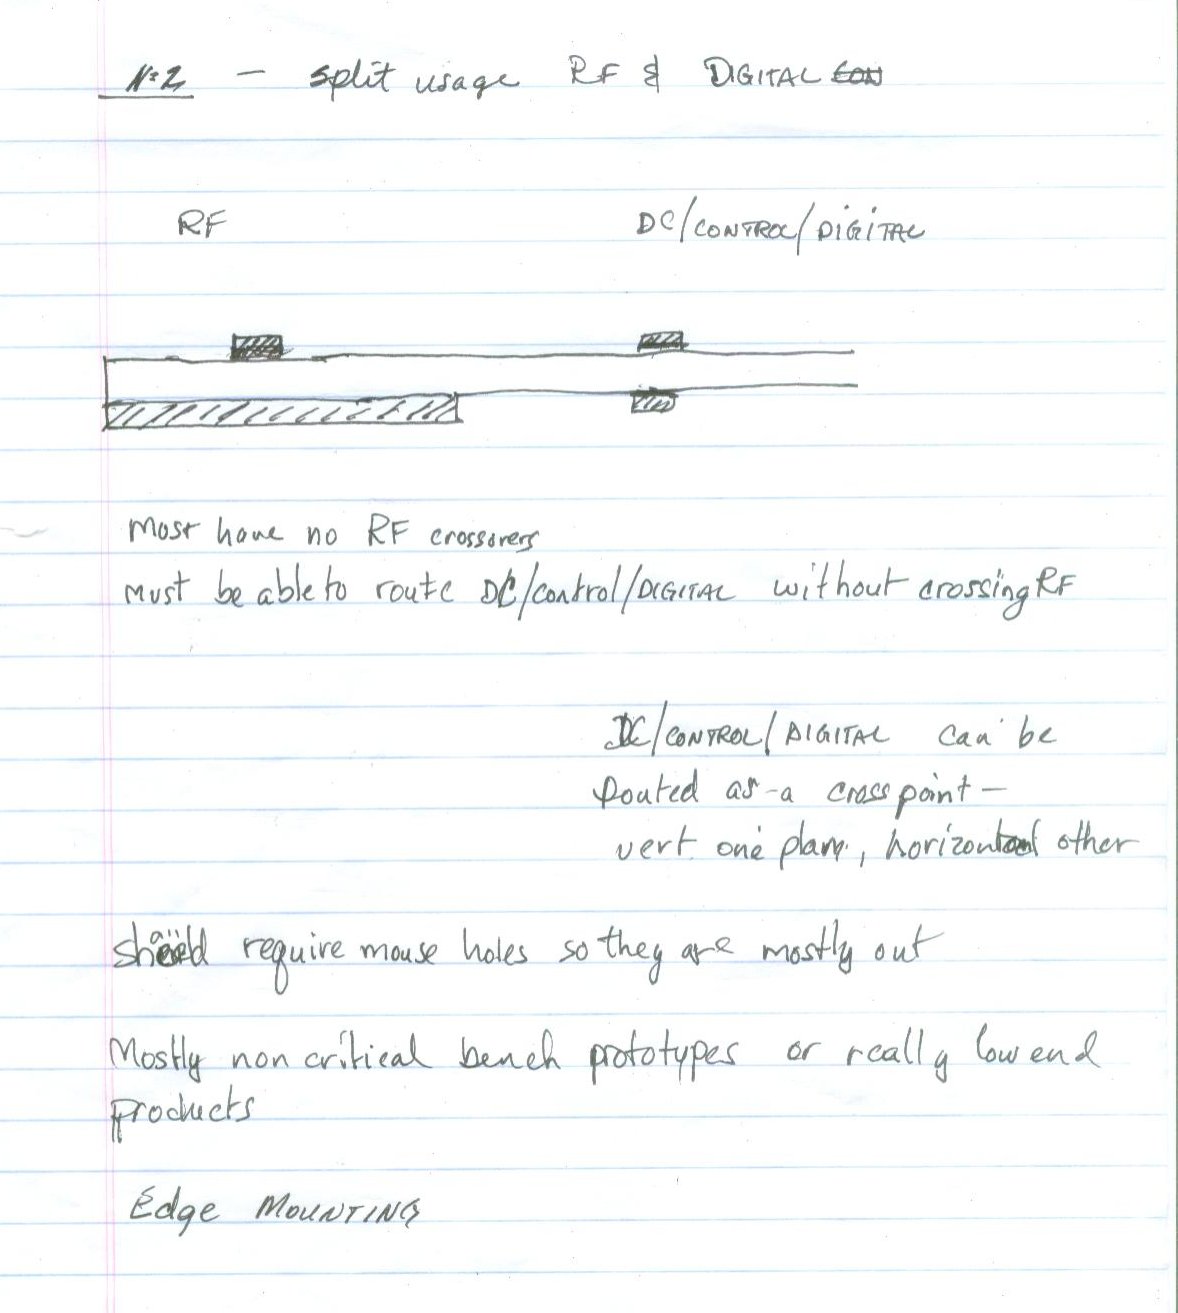 N=2 — split usage RF & DIGITAL CON
RF DC/CONTROL/DIGITAL
Must have no RF crossovers
Must be able to route DC/control/DIGITAL without crossing RF
DC/CONTROL/DIGITAL can be
routed as a crosspoint —
vert one plane, horizontal other
require mouse holes so they are mostly out
Mostly non critical bench prototypes or really low end
products
Edge MOUNTING